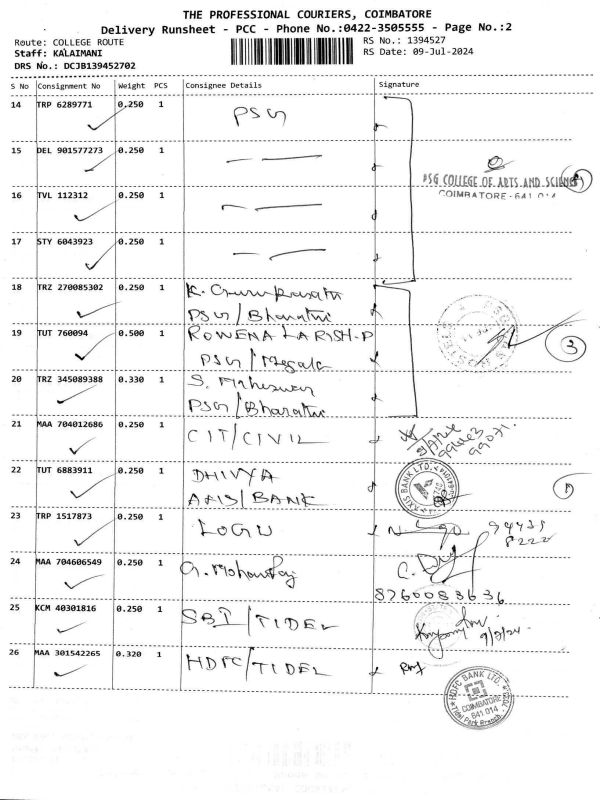 THE PROFESSIONAL COURIERS, COIMBATORE
Delivery Runsheet - PCC - Phone No.:0422-3505555 - Page No.:2
Route: COLLEGE ROUTE RS No.: 1394527
Staff: KALAIMANI RS Date: 09-Jul-2024
DRS No.: DCJB139452702
S No Consignment No Weight PCS Consignee Details Signature
14 TRP 6289771 0.250 1 PSG
15 DEL 901577273 0.250 1
PSG COLLEGE OF ARTS AND SCIENCE
COIMBATORE-641 014
16 TVL 112312 0.250 1
17 STY 6043923 0.250 1
18 TRZ 270085302 0.250 1 K.
PSG/Bharathi
19 TUT 760094 0.500 1 ROWENA LARISH-P
PSG/Megala
3
20 TRZ 345089388 0.330 1 S. Maheswari
PSG/Bharathi
21 MAA 704012686 0.250 1 CIT/CIVIL
99071
22 TUT 6883911 0.250 1 DHIVYA
AXIS/BANK
AXIS BANK LTD.
23 TRP 1517873 0.250 1 LOGU
94435
8222
24 MAA 704606549 0.250 1 G. Mohanraj
8760083636
25 KCM 40301816 0.250 1 SBI/TIDEL
26 MAA 301542265 0.320 1 HDFC/TIDEL
HDFC BANK LTD.
COIMBATORE
641 014
Tidel Park Branch